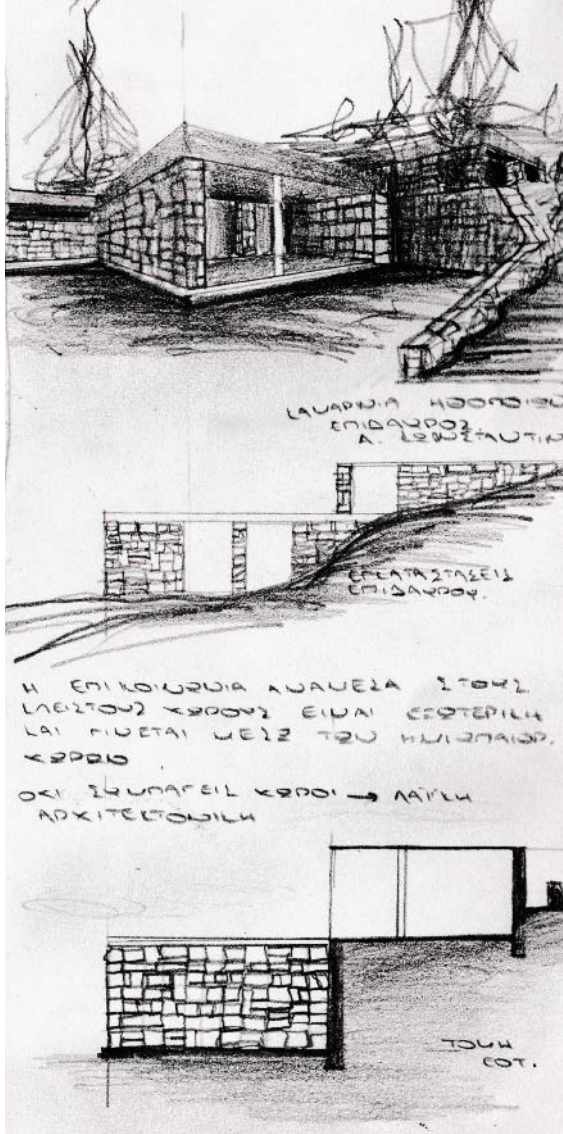 ΚΑΜΑΡΙΝΙΑ ΗΘΟΠΟΙΩΝ
ΕΠΙΔΑΥΡΟΣ
Α. ΚΩΝΣΤΑΝΤΙΝ
ΕΓΚΑΤΑΣΤΑΣΕΙΣ
ΕΠΙΔΑΥΡΟΥ.
Η ΕΠΙΚΟΙΝΩΝΙΑ ΑΝΑΜΕΣΑ ΣΤΟΥΣ
ΚΛΕΙΣΤΟΥΣ ΧΩΡΟΥΣ ΕΙΝΑΙ ΕΞΩΤΕΡΙΚΗ
ΚΑΙ ΓΙΝΕΤΑΙ ΜΕΣΩ ΤΩΝ ΗΜΙΥΠΑΙΘΡ.
ΧΩΡΩΝ
ΟΧΙ ΣΥΜΠΑΓΕΙΣ ΧΩΡΟΙ → ΛΑΪΚΗ
ΑΡΧΙΤΕΚΤΟΝΙΚΗ
ΤΟΜΗ